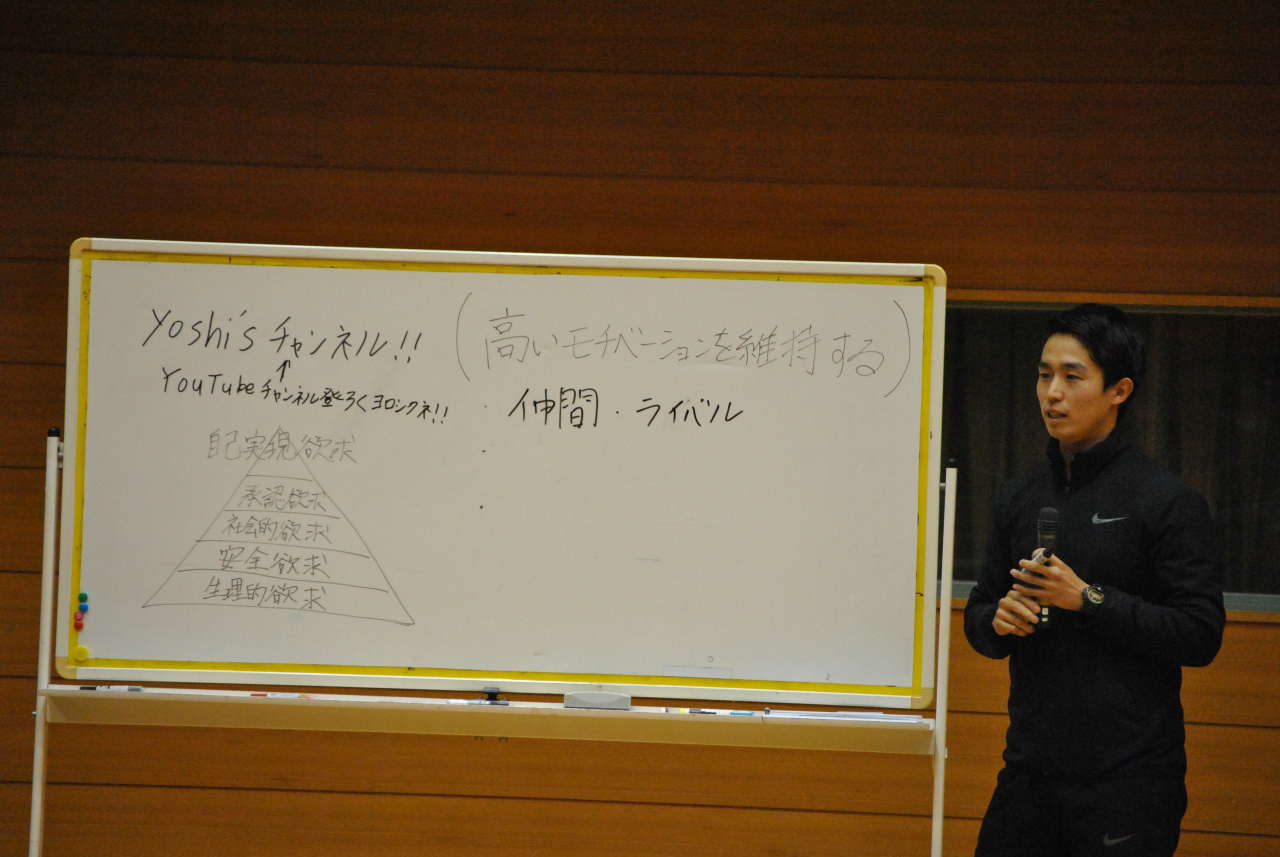 Yoshi's チャンネル!!
↑
YouTubeチャンネル登ろくヨロシクネ!!
自己実現欲求
承認欲求
社会的欲求
安全欲求
生理的欲求
(高いモチベーションを維持する)
・仲間・ライバル
・
・